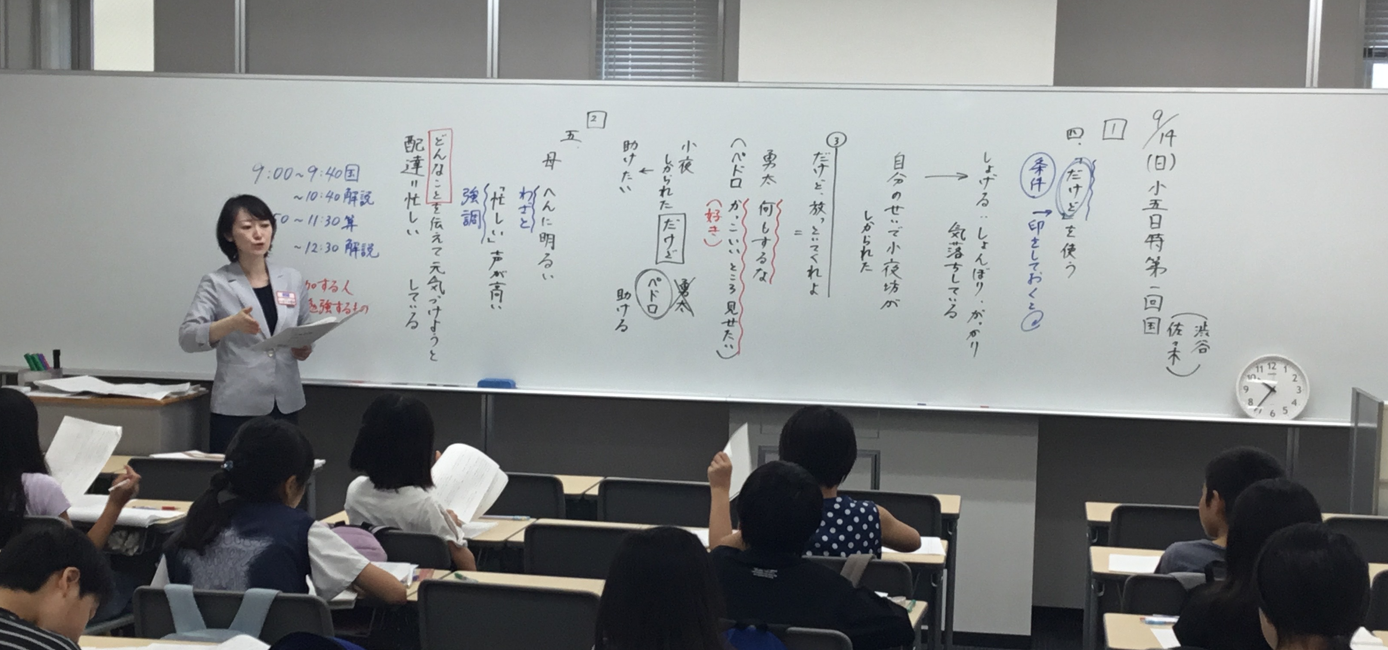 9/14(日)小五日特第一回国
(渋谷
佐々木)
1
四.「だけど」を使う
条件→印をしておくと
しょげる‥しょんぼり・がっかり
気落ちしている
自分のせいで小夜坊が
しかられた
3
だけど、放っといてくれよ
=
勇太 何しするな
(ペドロ かっこいいところ見せたい)
(好き)
小夜
しかられた だけど 勇太
ペドロ
助けたい
助ける
2
五.母 へんに明るい
わざと
「忙しい」声が高い
強調
どんなことを伝えて元気づけようと
している
配達=忙しい
9:00~9:40国
~10:40解説
~11:30算
~12:30解説
する人
勉強するもの
12
1
2
3
4
5
6
7
8
9
10
11